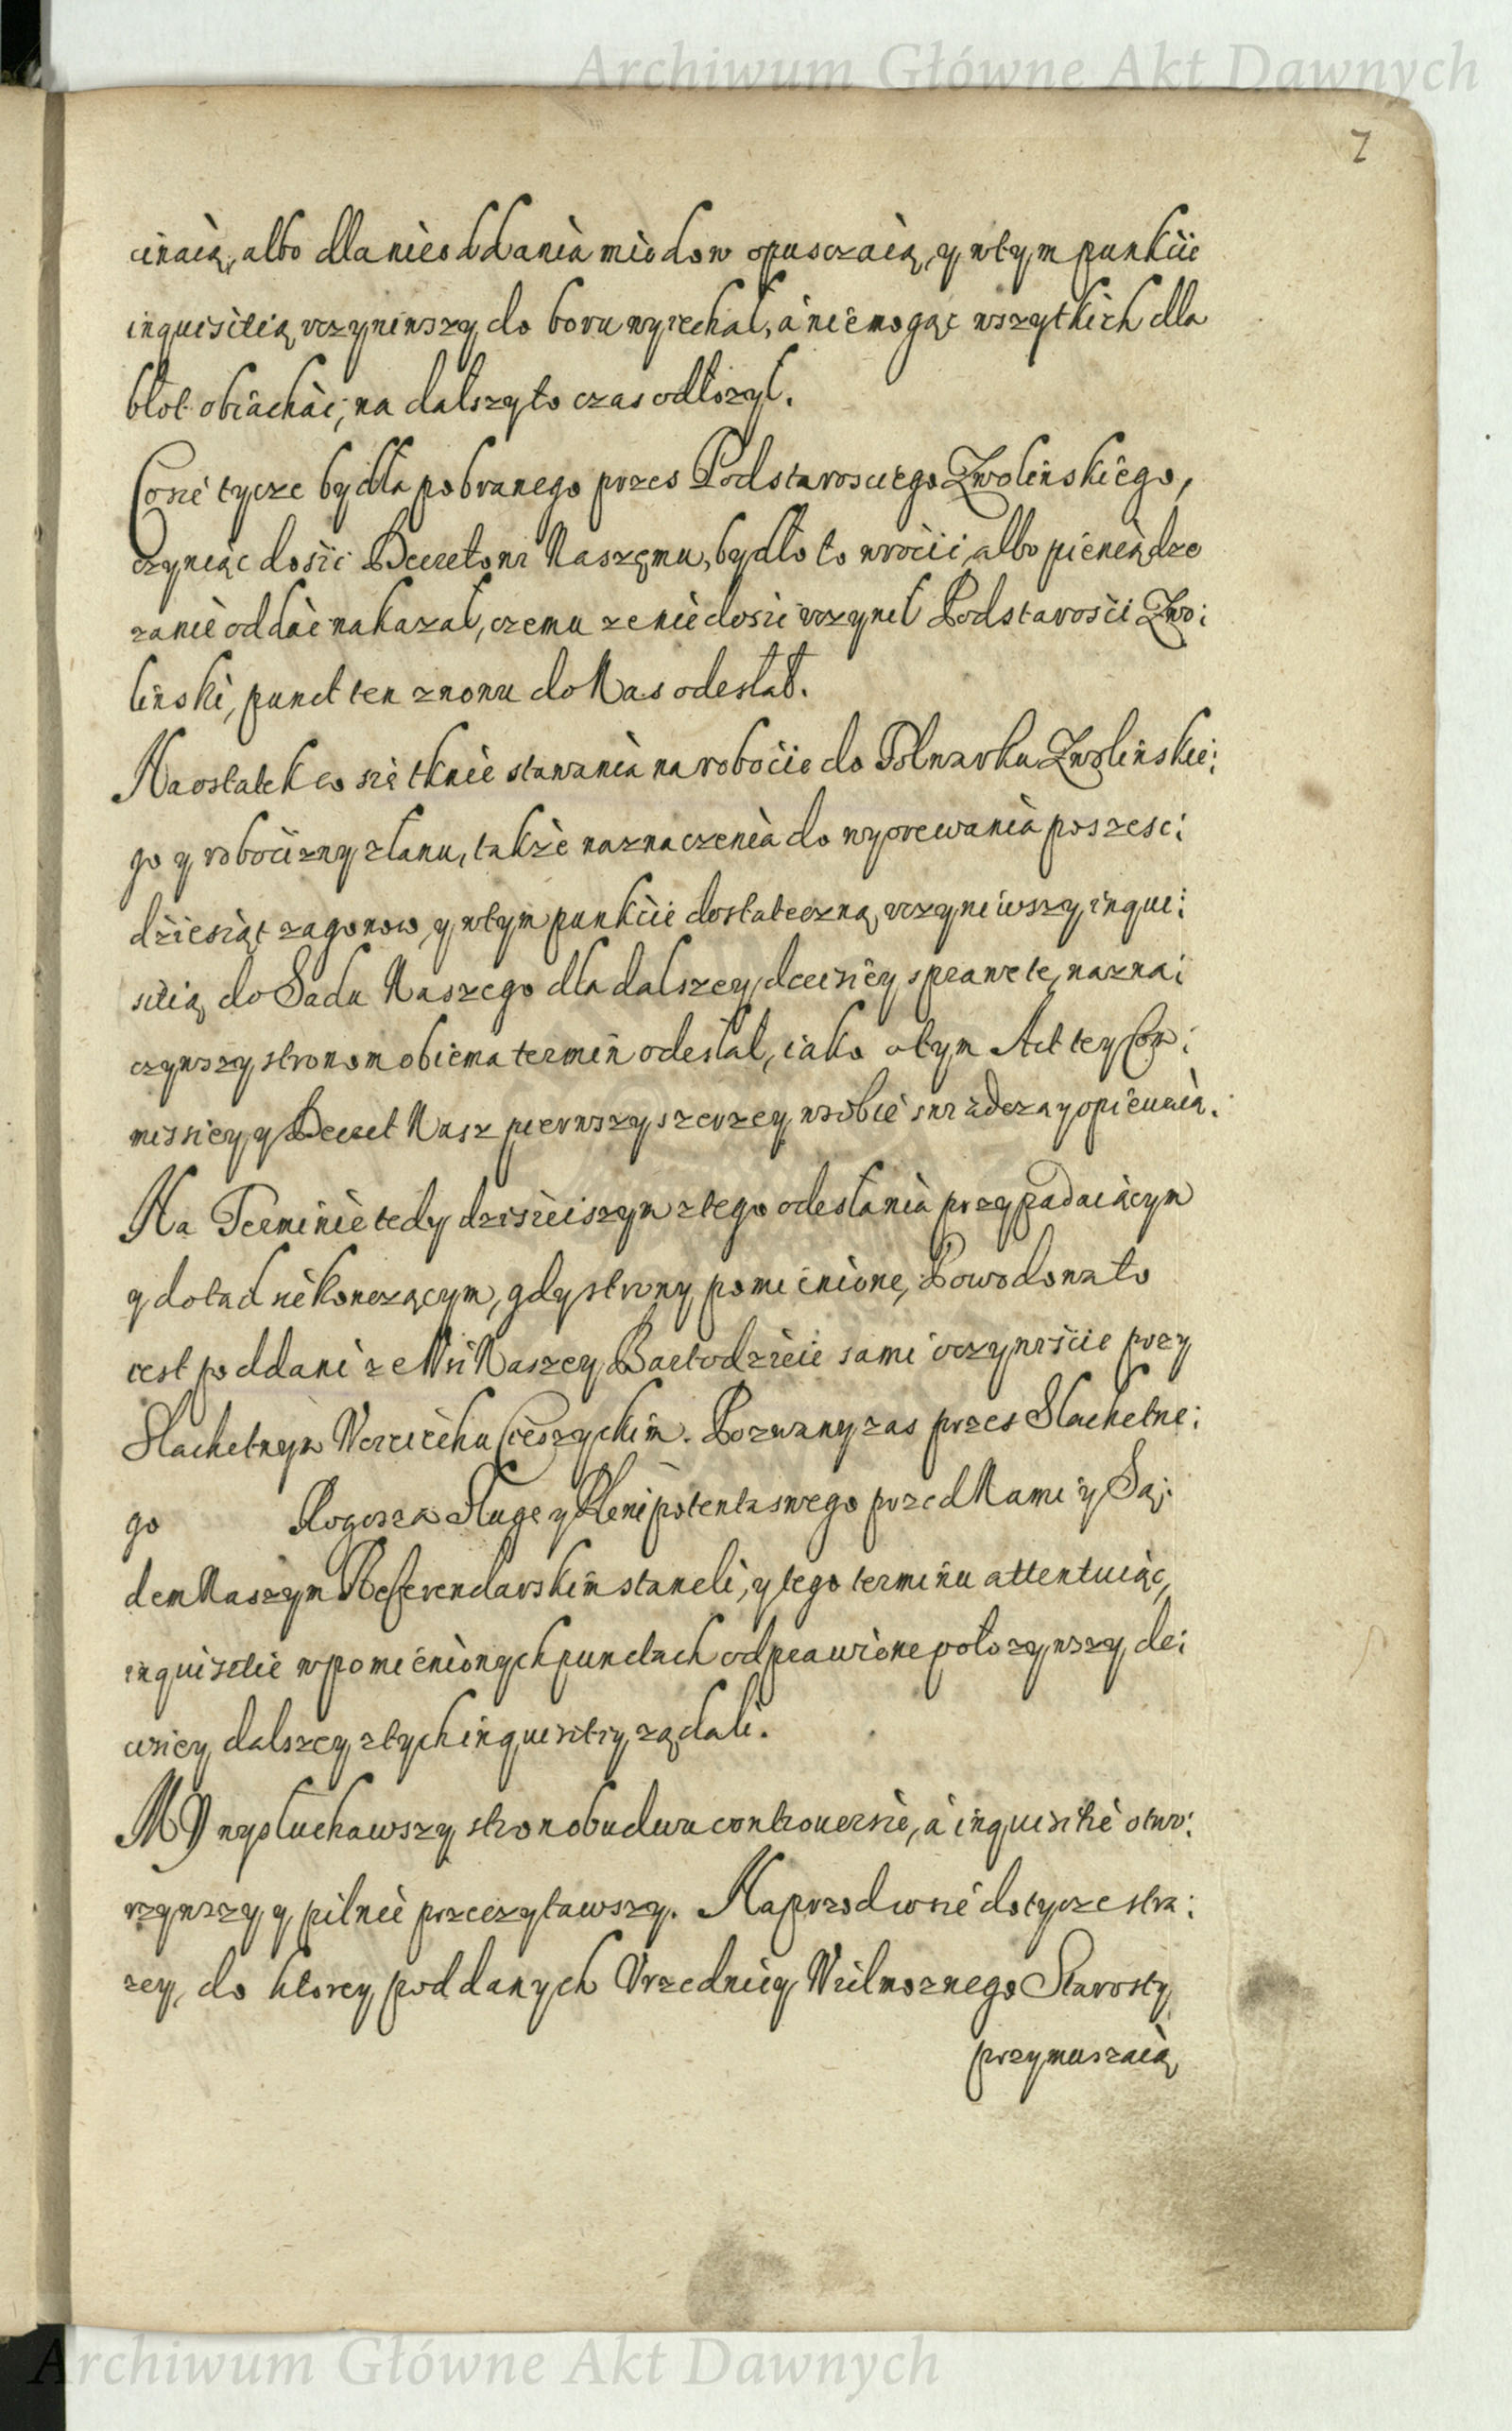 Archiwum Główne Akt Dawnych
7
cinaią, albo dla nieoddania miodow opusczaią, y wtym punkcie
inquisitią vczyniwszy do boru wyiechał, a niemogąc wszytkich dla
błot obiachać, na dalszy to czas odłożył.
Cosie tycze bydła pobranego przes Podstarosciego Zwolinskiego,
czyniąc dosic Decretowi Naszemu, bydło to wrocic albo pieniądze
zanie oddac nakazał, czemu ze niedosic vczynił Podstarosci Zwo:
linski, punct ten znowu do Nas odesłał.
Naostatek co sie tknie stawania na robocie do Folwarku Zwolinskie:
go y robocizny ztanu, także naznaczenia do wyorewania poszesc:
dziesiąt zagonow y wtym punkcie dostateczną vczyniwszy inqui:
sitią do Sadu Naszego dla dalszey decisiey sprawe te, nazna:
czywszy stronom obiema termin odesłał, iako otym Act tey Com:
missiey y Decret Nasz pierwszy szerzey wsobie swiadcza y opiewaią.
Na Terminie tedy dzisieiszym ztego odesłania przypadaiącym
y dotad niekonczącym, gdy strony pomienione, Powodowa to
iest poddani ze Wsi Naszey Bartodzieie sami oczywiscie przy
Slachetnym Woiciechu Cieszyckim. Pozwany zas przes Slachetne:
go Rogosza Sługe y Plenipotenta swego przed Nami y Są:
dem Naszym Referendarskim staneli, y tego terminu attentuiąc,
inquisitie wpomienionych punctach odprawione położywszy de:
cisiey dalszey ztych inquisitiy ządali.
MY wysłuchawszy stron obudwu controuersie, a inquisitie otwo:
rzywszy y pilnie przeczytawszy. Naprzod cosie dotycze stra:
zey, do ktorey poddanych Vrzednicy Wielmoznego Starosty
przymuszaią
Archiwum Główne Akt Dawnych